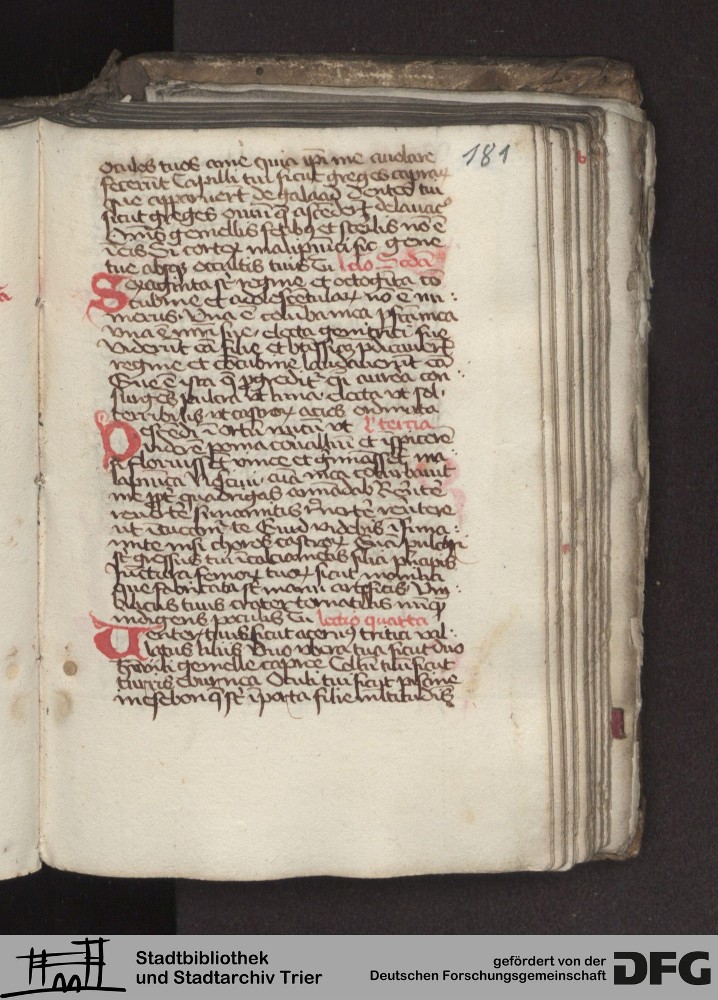 181
oculos tuos a me quia ipi me avolare
fecerūt Capilli tui sicut greges caprarꝝ
que apparuert de galaad Dentes tui
sicut greges oviū q̄ ascēdert de lavac°
Om̄s gemellis fetibꝰ et sterilis nō ē
ī eis Si cortex mali punici sic gene
tue absqꝫ occultis tuis Tu lcio Scda
Sexaginta st regine et octogīta cō
cubine et adolescētularꝝ nō ē nu :
merus Una ē columba mea pfcā mea
una ē mris sue electa genitrici sue
viderūt eā filie et btissimā pdicavert
regine et cōcubine laudaverūt eā
Que ē ista q̄ pgredit' qsi aurora con :
surgēs pulcra ut luna electa ut sol ·
terribilis ut castrorꝝ acies ordinata
Descēdi ī ortū nucū ut lc tercia
viderē poma cōvalliū et īspicerē
si floruisset vinee et germīasset ma
la punica Nescivi aīa mea cōturbavit
me ppt quadrigas amīadab Revertē
revertē sunamitis rēvertē revertere
ut ītueamr te Quid videbis ī suna :
mite nisi choros castrorꝝ Quā pulcri
st gressus tui ī calciamētis filia prīcipis
Iunctura femorꝝ tuorꝝ sicut monilia
que fabricata st manu artificis Um
bilicus tuus crater tornatilis nūqꝫ
indigens poculis Tu lectio quarta
Venter tuus sicut acervꝰ tritici val :
latus liliis Duo ubera tua sicut duo
hynuli gemelle capree Collū tuū sicut
turris eburnea Oculi tui sicut piscine
in esebon q̄ st ī porta filie multitudīs
Stadtbibliothek
und Stadtarchiv Trier
gefördert von der
Deutschen Forschungsgemeinschaft
DFG